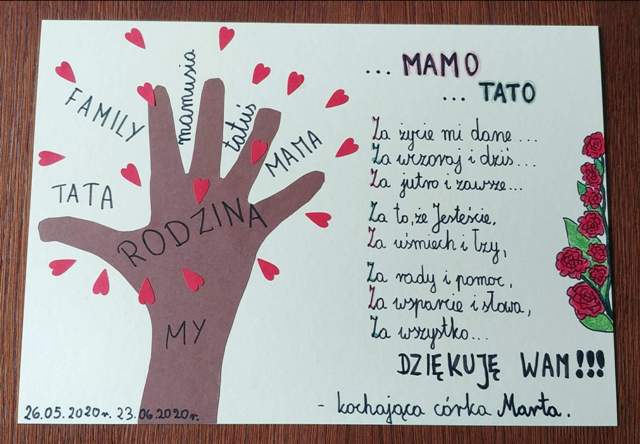 FAMILY
mamusia
tatuś
MAMA
TATA
RODZINA
MY
26.05.2020r. 23.06.2020r.
... MAMO
... TATO
Za życie mi dane...
Za wczoraj i dziś...
Za jutro i zawsze...
Za to, że Jesteście,
Za uśmiech i łzy,
Za rady i pomoc,
Za wsparcie i słowa,
Za wszystko...
DZIĘKUJĘ WAM!!!
- kochająca córka Marta.